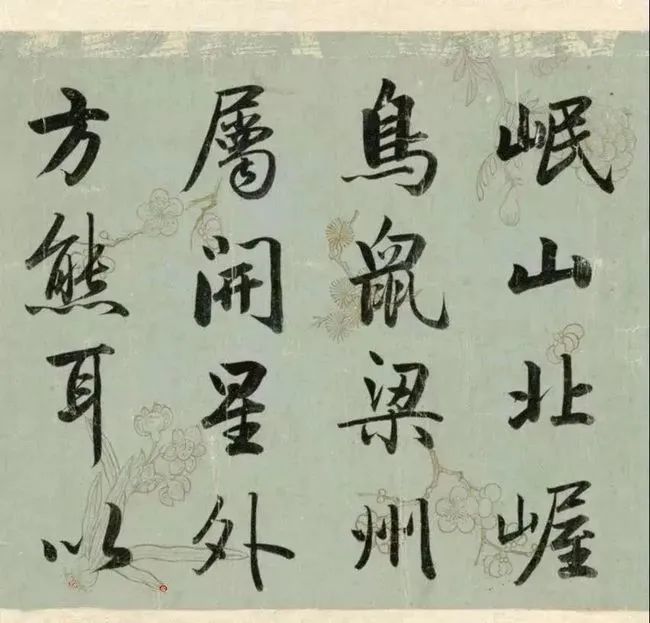 岷山北
鳥鼠梁州
屬開星外
方熊耳以